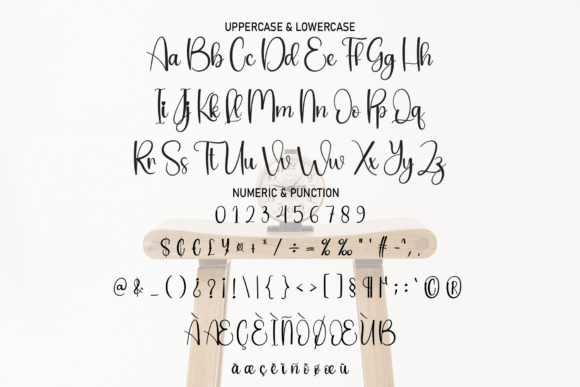 UPPERCASE & LOWERCASE
Aa Bb Cc Dd Ee Ff Gg Hh
Ii Jj Kk Ll Mm Nn Oo Pp Qq
Rr Ss Tt Uu Vv Ww Xx Yy Zz
NUMERIC & PUNCTION
0 1 2 3 4 5 6 7 8 9
$ ¢ € £ ¥ ¤ + * / ÷ = % ‰ " ' # - ^ , .
@ & _ ( ) ¿ ? ¡ ! \ | { } < > [ ] § ¶ ; : ` © ®
À Æ Ç È Ì Ñ Ò Ø Œ Ù
à æ ç è ì ñ ò ø œ ù